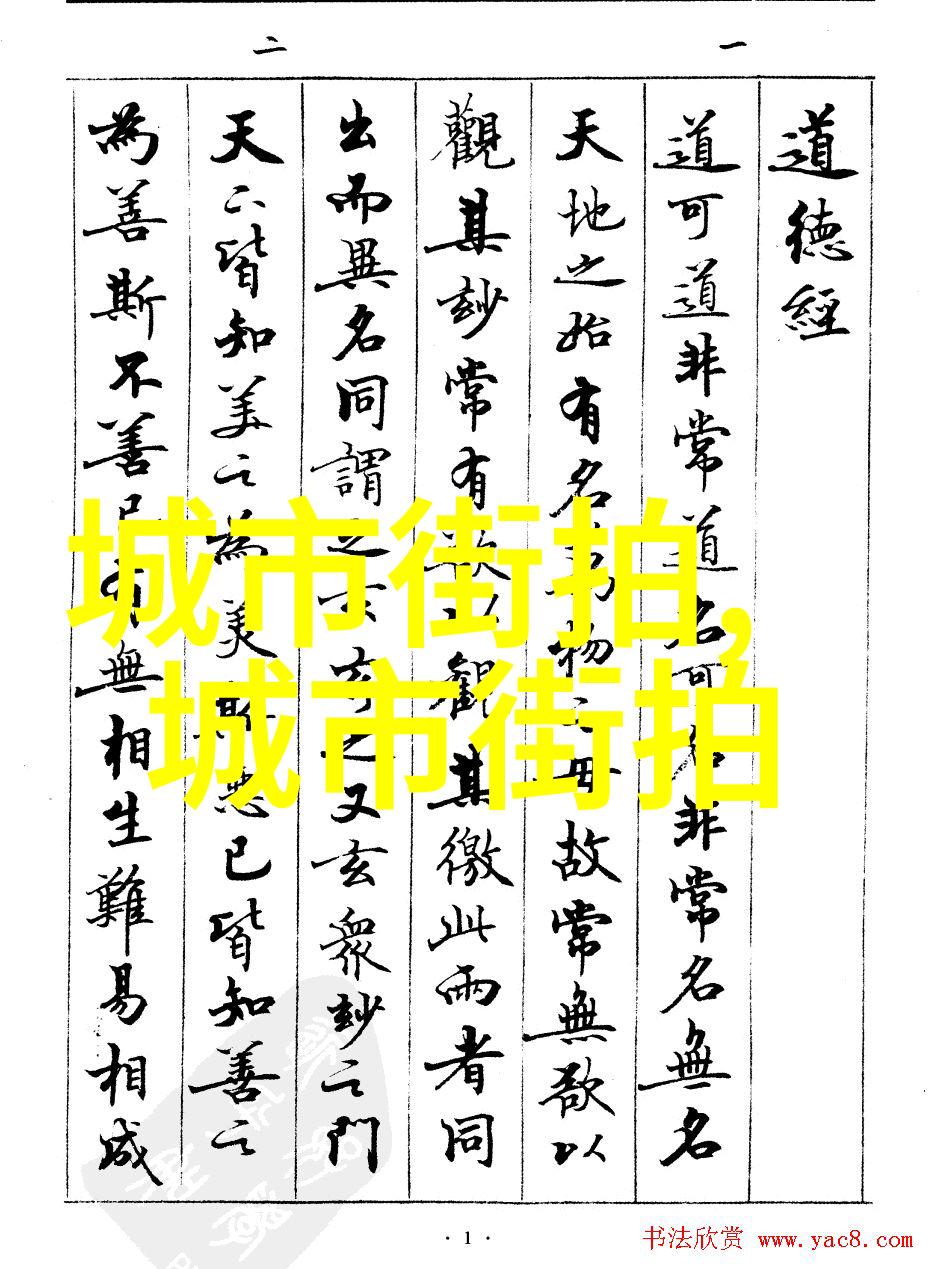 一
二
道德經
道可道非常道名可名非常名無名
天地之始有名萬物之母故常無欲以
觀其玅常有欲以觀其徼此兩者同
出而異名同謂之玄玄之又玄衆玅之門
天下皆知美之為美斯惡已皆知善之
為善斯不善已有無相生難易相成
城市街拍,
城市街拍
· 1 ·
书法欣赏 www.yac8.com